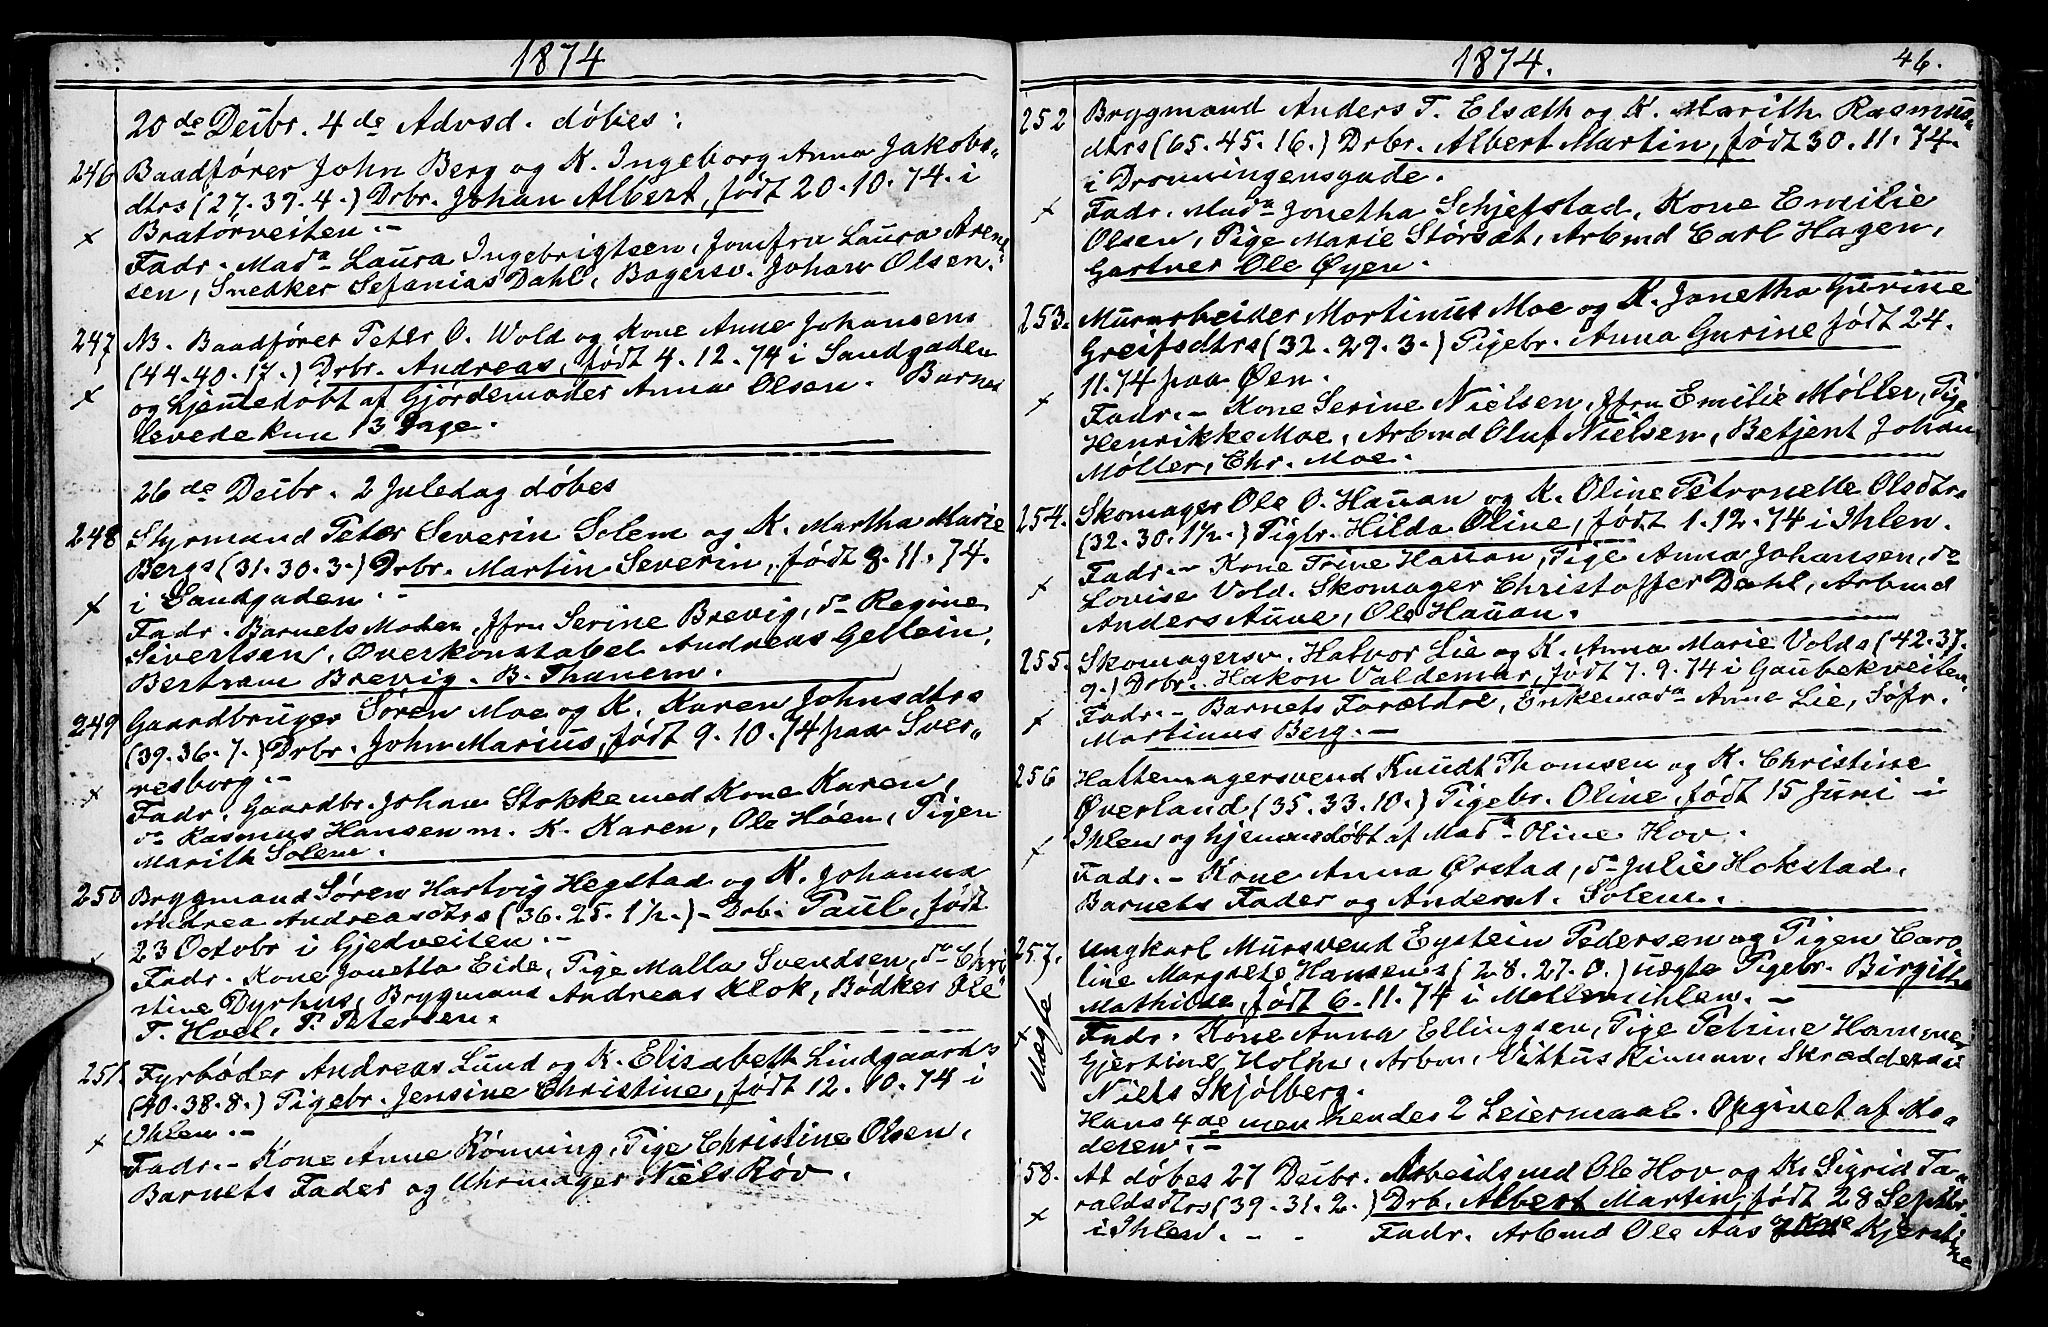 1874
20de Decbr. 4de Advsd. döbes:
246 Baadförer John Berg og K. Ingeborg Anna Jakobs-
dtrs (27.39.4.) Drbr. Johan Albert, födt 20.10.74. i
Bratörveiten.-
Fadr. Mada Laura Ingebrigtsen, Jomfru Laura Aren-
sen, Snedker Sefanias Dahl, Bagersv. Johan Olsen.
247 NB. Baadförer Peter O. Wold og Kone Anne Johansens
(44.40.17.) Drbr. Andreas, födt 4.12.74 i Sandgaden
x og hjemedöbt af Gjördemoder Anna Olsen. Barnet
levede kun 13 Dage.
26de Decbr. 2 Juledag döbes
248 Styrmand Peter Severin Solem og K. Martha Marie
Bergs (31.30.3.) Drbr. Martin Severin, födt 8.11.74.
x i Sandgaden.-
Fadr. Barnets Moder, Jfru Serine Brevig, do Regine
Sivertsen, Overkonstabel Andreas Gellein,
Bertram Brevig. B. Thanem.
249 Gaardbruger Sören Moe og K. Karen Johnsdtrs
(39.36.7.) Drbr. John Marius, födt 9.10.74 paa Sver-
x resborg.-
Fadr. Gaardbr. Johan Stokke med Kone Karen,
do Rasmus Hansen m. K. Karen, Ole Höen, Pigen
Marith Solem.
250 Bryggmand Sören Hartvig Hegstad og K. Johanna
Andrea Andreasdtrs (36.25.1½.)- Drb. Paul, födt
23 Octobr i Gjedveiten.-
Fadr. Kone Jonetta Eide, Pige Malla Svendsen, do Chri
stine Dyrhus, Brygmand Andreas Klok, Bödker Ole
T. Hoel. P. Petersen.
251. Fyrböder Andreas Lund og K. Elisabeth Lindgaards
(40.38.8.) Pigebr. Jensine Christine, födt 12.10.74 i
x Ihlen.-
Fadr.- Kone Anne Rönning, Pige Christine Olsen,
Barnets Fader og Uhrmager Niels Röv.
1874. 46.
252 Bryggmand Anders T. Elsæth og K. Marith Rasmus-
dtrs (65.45.16.) Drbr. Albert Martin, födt 30.11.74.
i Dronningensgade.
x Fadr. Mada Jonetha Schjefstad, Kone Emilie
Olsen, Pige Marie Störsæt, Arbmd Carl Hagen,
Gartner Ole Öyen.
253. Murarbeider Mortinus Moe og K. Jonetha Gurine
Greifsdtrs (32.29.3.) Pigebr. Anna Gurine födt 24.
11.74 paa Öen.
x Fadr.- Kone Serine Nielsen, Jfru Emilie Möller, Pige
Henrikke Moe, Arbmd Oluf Nielsen, Betjent Johan
Möller, Chr. Moe.
254. Skomager Ole O. Hauan og K. Oline Petronelle Olsdtrs
(32.30.1½.) Pigbr. Hilda Oline, födt 1.12.74 i Ihlen.
Fadr.- Kone Trine Hauan, Pige Anna Johansen, do
x Lovise Vold. Skomager Christoffer Dahl, Arbmd
Anders Aune, Ole Hauan.
255. Skomagersv. Halvor Lie og K. Anna Marie Volds (42.37.
9.) Drbr. Hakon Valdemar, födt 7.9.74 i Gaubekveiten.
x Fadr.- Barnets Forældre, Enkemada Anne Lie, Söfr.
Martinus Berg.-
256 Hattemagersvend Knudt Thomsen og K. Christine
Överland (35.33.10.) Pigebr. Oline, födt 15 Juni i
x Ihlen og hjemmedöbt af Mada Oline Hov.
Fadr.- Kone Anna Örstad, do Julie Hokstad,
Barnets Fader og Andernt. Solem.
257. Ungkarl Mursvend Eystein Pedersen og Pigen Caro
line Margrete Hansens (28.27.0.) uægte Pigebr. Birgitte
Mathilde, födt 6.11.74 i Mellemihlen.-
x Uægte Fadr. Kone Anna Ellingsen, Pige Petrine Hammer
Gjertine Holm, Arbm. Vittus Kinnan, Skræddersv
Niels Skjölberg.
Hans 4de men hendes 2 Leiermaal. Opgivet af Mo-
deren.-
58. At döbes 27 Decbr. Arbeidsmd Ole Hov og K. Sigrid Ta-
raldsdtrs (39.31.2.) Drb. Albert Martin, födt 28 Septbr.
x i Ihlen. - - Fadr. Arbmd Ole Aas og Kone Kjersti